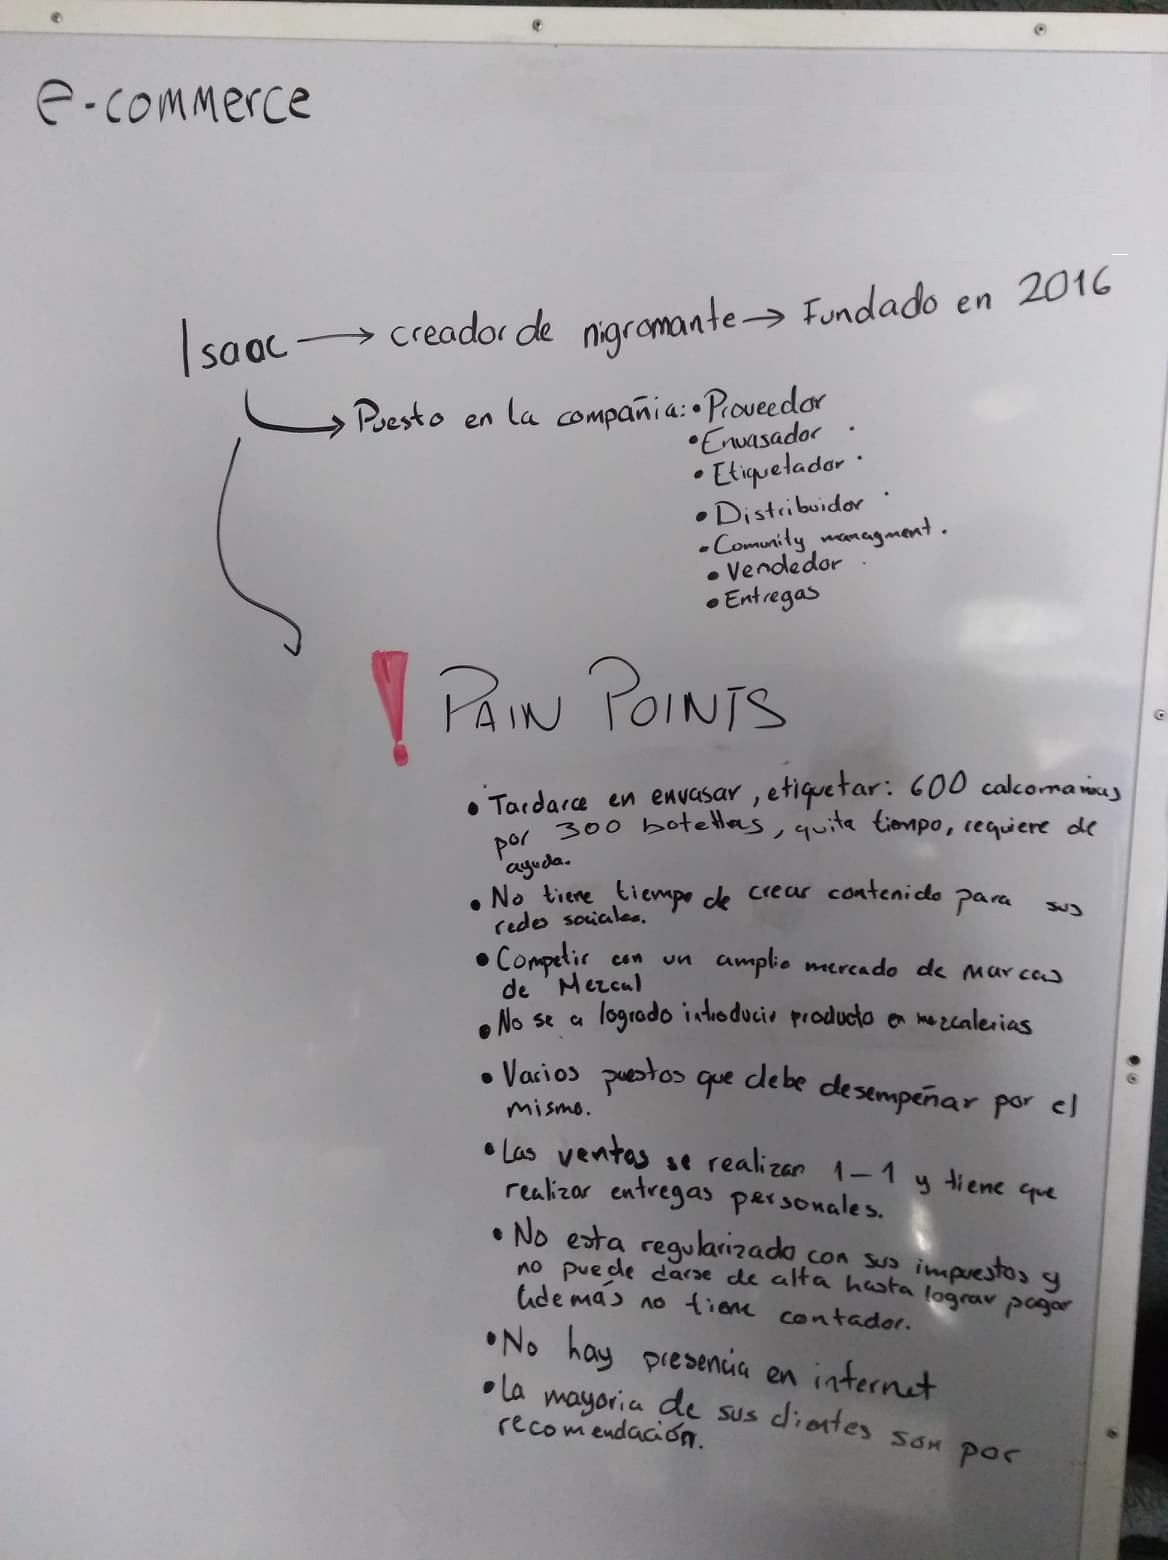 e-commerce
Isaac → creador de nigromante → Fundado en 2016
→ Puesto en la compañia: • Proveedor
• Envasador
• Etiquetador
• Distribuidor
• Comunity managment.
• Vendedor
• Entregas
! PAIN POINTS
• Tardarce en envasar, etiquetar: 600 calcomanias
por 300 botellas, quita tiempo, requiere de
ayuda.
• No tiene tiempo de crear contenido para sus
redes sociales.
• Competir con un amplio mercado de marcas
de Mezcal
• No se a logrado introducir producto en mezcalerias
• Varios puestos que debe desempeñar por el
mismo.
• Las ventas se realizan 1-1 y tiene que
realizar entregas personales.
• No esta regularizado con sus impuestos y
no puede darse de alta hasta lograr pagar
además no tiene contador.
• No hay presencia en internet
• La mayoria de sus clientes son por
recomendación.